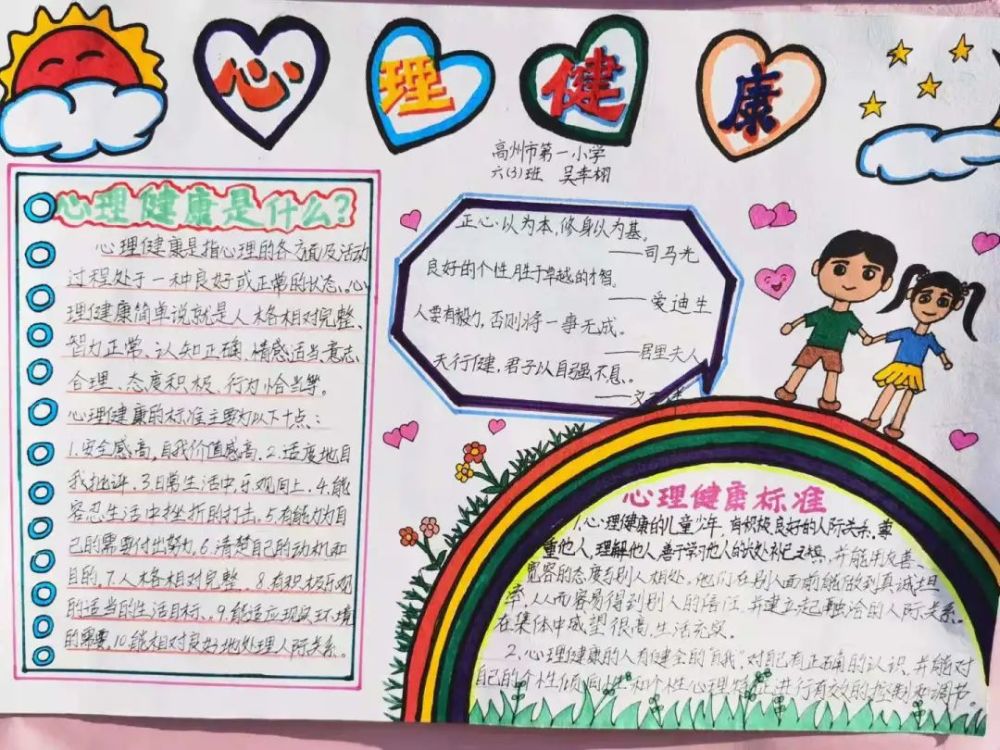 心理健康
高州市第一小学
六(3)班 吴幸栩
心理健康是什么?
心理健康是指心理的各方面及活动
过程处于一种良好或正常的状态。心
理健康简单说就是人格相对完整、
智力正常、认知正确、情感适当、意志
合理、态度积极、行为恰当等。
心理健康的标准主要为以下十点:
1.安全感高,自我价值感高.2.适度地自
我批评.3日常生活中,乐观向上.4.能
容忍生活中挫折的打击.5.有能力为自
己的需要付出努力.6.清楚自己的动机和
目的.7.人格相对完整.8.有积极乐观
的适当的生活目标.9.能适应现实环境
的需要.10.能相对良好地处理人际关系.
正心以为本,修身以为基。
——司马光
良好的个性胜于卓越的才智。
——爱迪生
人要有毅力,否则将一事无成。
——居里夫人
天行健,君子以自强不息。
——文
心理健康标准
1.心理健康的儿童少年,有积极良好的人际关系。尊
重他人,理解他人,善于学习他人的长处补己之短,并能用友善、
宽容的态度与别人相处。他们在别人面前能做到真诚坦
率,从而容易得到别人的信任,并建立起融洽的人际关系。
在集体中威望很高,生活充实。
2.心理健康的人有健全的"自我",对自己有正确的认识,并能对
自己的个性倾向性和个性心理特征进行有效的控制和调节。